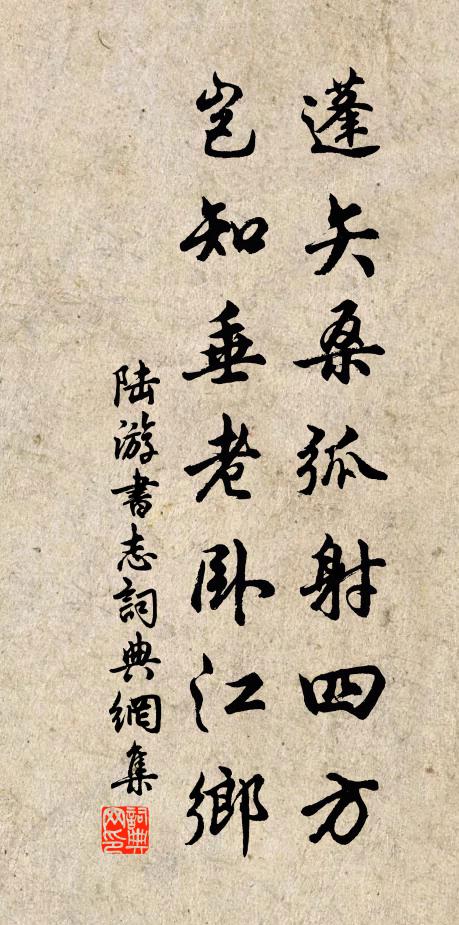 蓬矢桑弧射四方
豈知垂老臥江鄉
陸游書志詞典網集
詞典网印